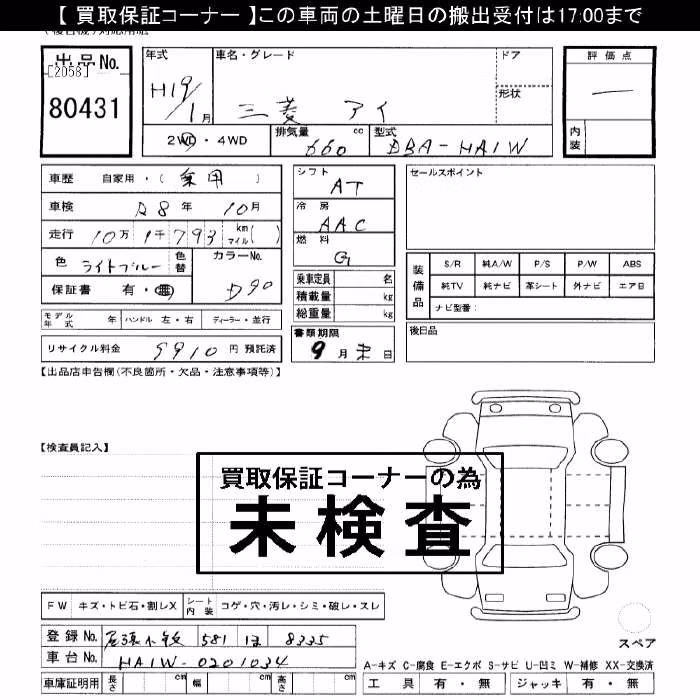 【 買取保証コーナー 】この車両の土曜日の搬出受付は17:00まで
出品No.
[2058]
80431
年式
H19/1月
車名・グレード
三菱 アイ
ドア
形状
評価点
―
内装
2WD・4WD
排気量 cc
660
型式
DBA-HA1W
車歴 自家用・(乗用)
車検 R8年 10月
走行 10万1千793 km マイル( )
色 ライトブルー 色替
カラーNo.
D90
保証書 有・無
シフト
AT
冷房
AAC
燃料
G
乗車定員 名
積載量 kg
総重量 kg
セールスポイント
装備品
S/R 純A/W P/S P/W ABS
純TV 純ナビ 革シート 外ナビ エアB
ナビ型番:
モデル年式 年 ハンドル 左・右 ディーラー・並行
リサイクル料金 9910 円 預託済
書類期限
9月末日
後日品
【出品店申告欄(不良箇所・欠品・注意事項等)】
【検査員記入】
買取保証コーナーの為
未検査
FW キズ・トビ石・割レX シート内装 コゲ・穴・汚レ・シミ・破レ・スレ
登録No. 尾張小牧 581 8335
車台No. HA1W-0201034
車庫証明用 長さ cm 幅 cm 高さ cm
スペア
A-キズ C-腐食 E-エクボ S-サビ U-凹ミ W-補修 XX-交換済
工具 有・無 ジャッキ 有・無